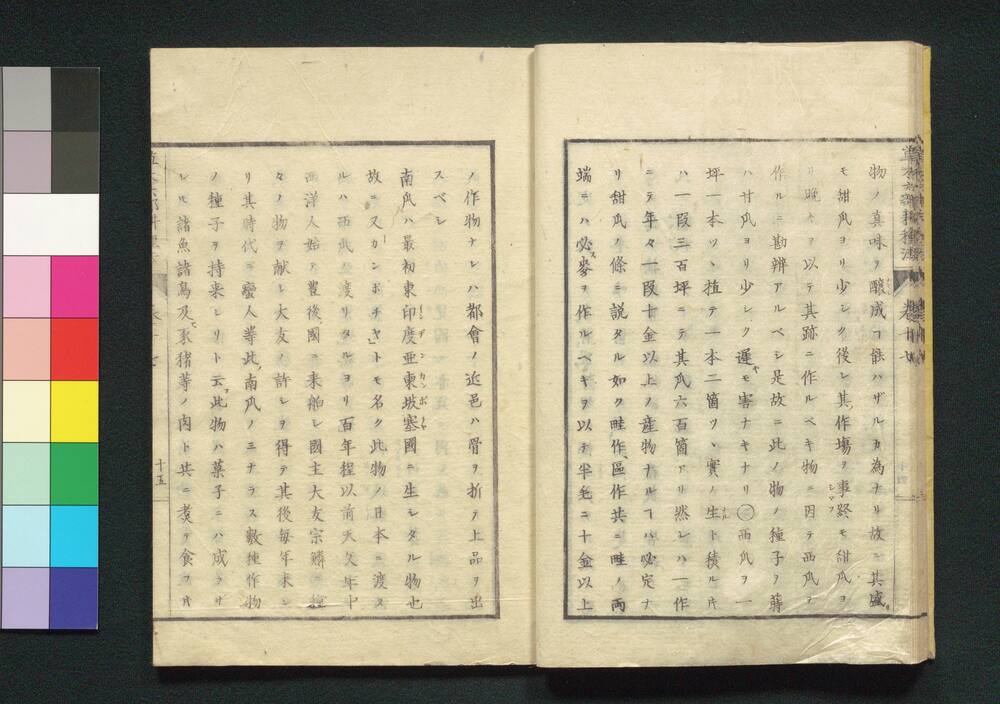 草木六部耕種法 卷廿七
物ノ真味ヲ釀成コ能ハザルカ為ナリ故ニ其盛
モ甜瓜ヨリ少シク後レ其作場ヲ事終モ甜瓜ヨ
リ晩キヲ以テ其跡ニ作ルベキ物ニ因テ西瓜ヲ
作ルニ勘辨アルベシ是故ニ此ノ物ノ種子ヲ蒔
ハ甘瓜ヨリ少シク遲モ害ナキナリ〇西瓜ヲ一
坪一本ツヽ植テ一本二箇ツヽ實ノ生ト積ル片
ハ一段三百坪ニテ其瓜六百箇アリ然レハ一作
ニテ年々一段十金以上ノ産物ナルコハ必定ナ
リ甜瓜ノ條ニ説タル如ク畦作區作共ニ畦ノ両
端ニハ必麥ヲ作ルベキヲ以テ半毛ニ十金以上
ノ作物ナレハ都會ノ近邑ハ骨ヲ折テ上品ヲ出
スベシ
南瓜ハ最初東印度亜東坡塞國ニ生シタル物也
故ニ又カンボチヤトモ名ク此物ノ日本ニ渡ス
ルハ西瓜ノ渡リタルヨリ百年程以前天文年中
西洋人始テ豊後國ニ来舶シ國主大友宗麟ニ種
々ノ物ヲ献シ大友ノ許シヲ得テ其後毎年来レ
リ其時代ニ蠻人等此南瓜ノミナラス數種作物
ノ種子ヲ持来シリト云此物ハ菓子ニハ成ラザ
レル諸魚諸鳥及豕猪等ノ肉ト共ニ煑テ食フ片
十五